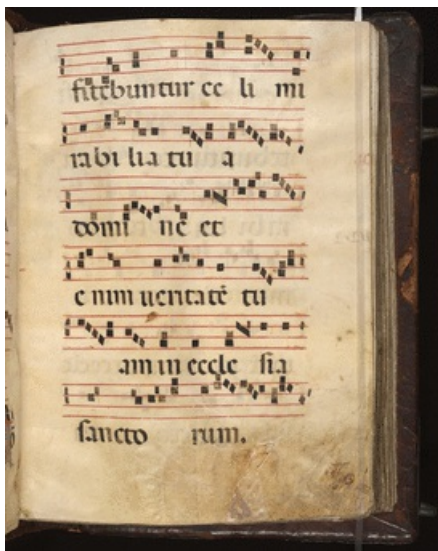 fitebuntur ce li mi
rabi lia tu a
domi ne et
e nim veritatē tu
am in eccle sia
sancto rum.